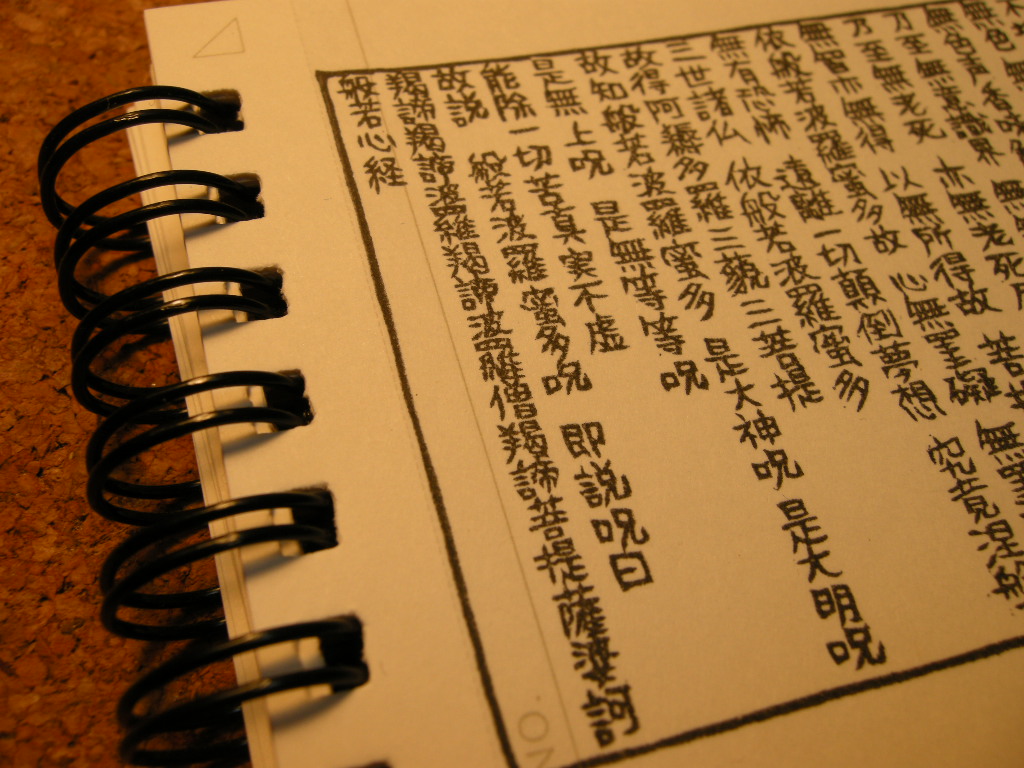 無色
無色声香味
乃至無意識界 無老死
乃至無老死 亦無老死
無智亦無得 以無所得故 菩提
依般若波羅蜜多故 心無罣礙 無罣
無有恐怖 遠離一切顛倒夢想 究竟涅槃
三世諸仏 依般若波羅蜜多
故得阿耨多羅三藐三菩提
故知般若波羅蜜多 是大神呪 是大明呪
是無上呪 是無等等呪
能除一切苦真実不虚
故説 般若波羅蜜多呪 即説呪曰
羯諦羯諦波羅羯諦波羅僧羯諦菩提薩婆訶
般若心経
NO.